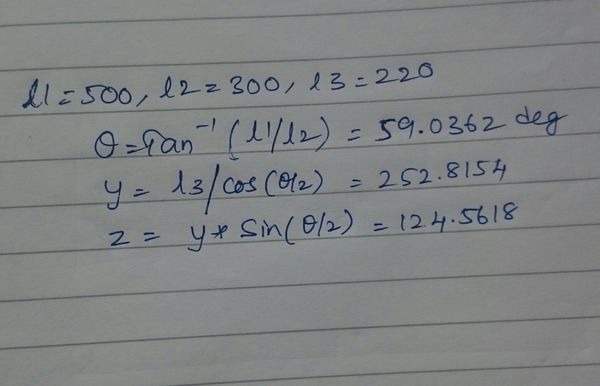 l1=500, l2=300, l3=220
θ=Tan⁻¹ (l1/l2) = 59.0362 deg
y= l3/cos(θ/2) = 252.8154
z= y* sin(θ/2) = 124.5618